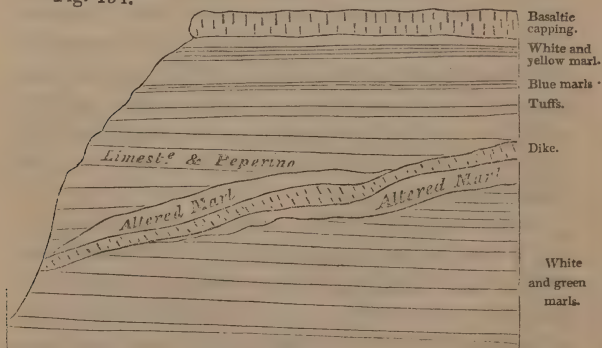 Basaltic
capping.
White and
yellow marl.
Blue marls
Tuffs.
Limestᵉ & Peperino
Dike.
Altered Marl
Altered Marl
White
and green
marls.